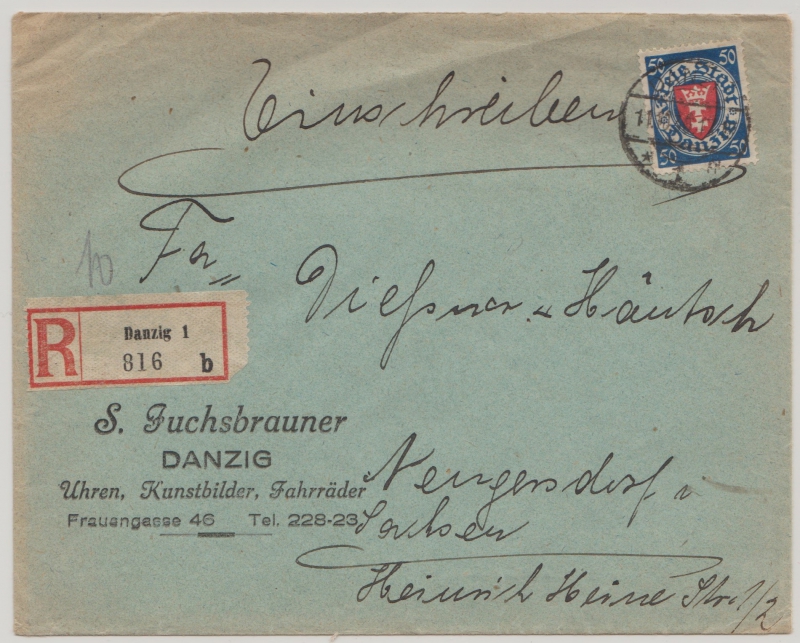 50 50
Freie Stadt
Danzig
50 50
Einschreiben
10
Fa„
Dießner u. Häntsch
R Danzig 1
816 b
S. Fuchsbrauner
DANZIG
Uhren, Kunstbilder, Fahrräder
Frauengasse 46 Tel. 228-23
Neugersdorf i
Sachsen
Heinrich Heine Str. 1/2